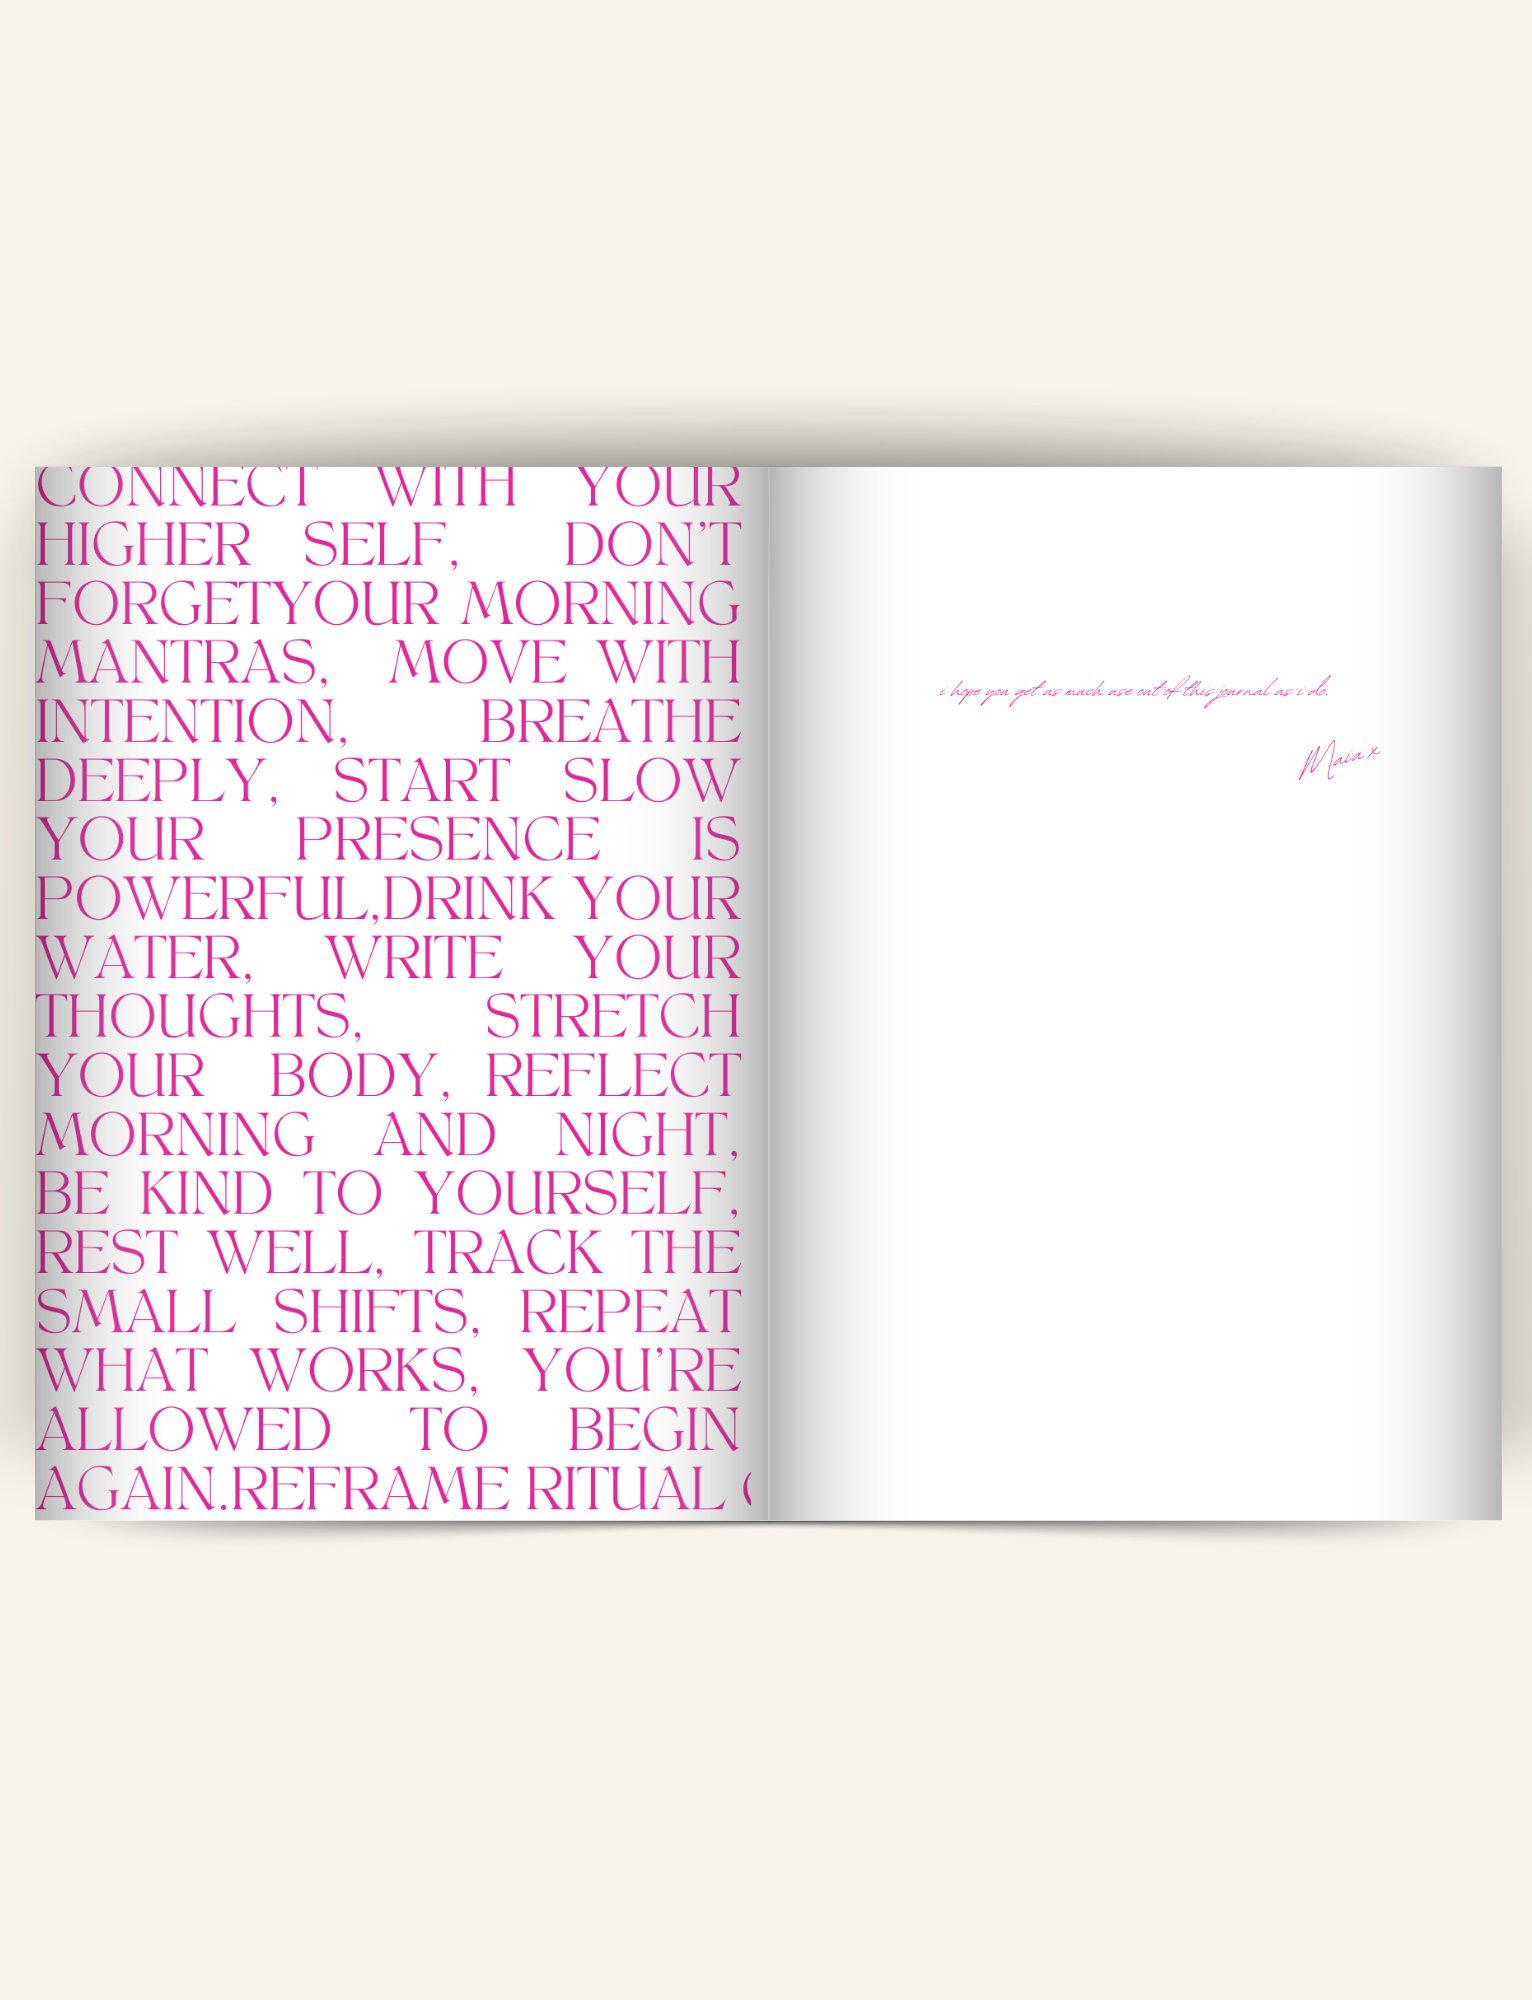 CONNECT WITH YOUR
HIGHER SELF, DON'T
FORGETYOUR MORNING
MANTRAS, MOVE WITH
INTENTION, BREATHE
DEEPLY, START SLOW
YOUR PRESENCE IS
POWERFUL,DRINK YOUR
WATER, WRITE YOUR
THOUGHTS, STRETCH
YOUR BODY, REFLECT
MORNING AND NIGHT,
BE KIND TO YOURSELF,
REST WELL, TRACK THE
SMALL SHIFTS, REPEAT
WHAT WORKS, YOU'RE
ALLOWED TO BEGIN
AGAIN.REFRAME RITUAL
i hope you get as much use out of this journal as i do.
Maia x